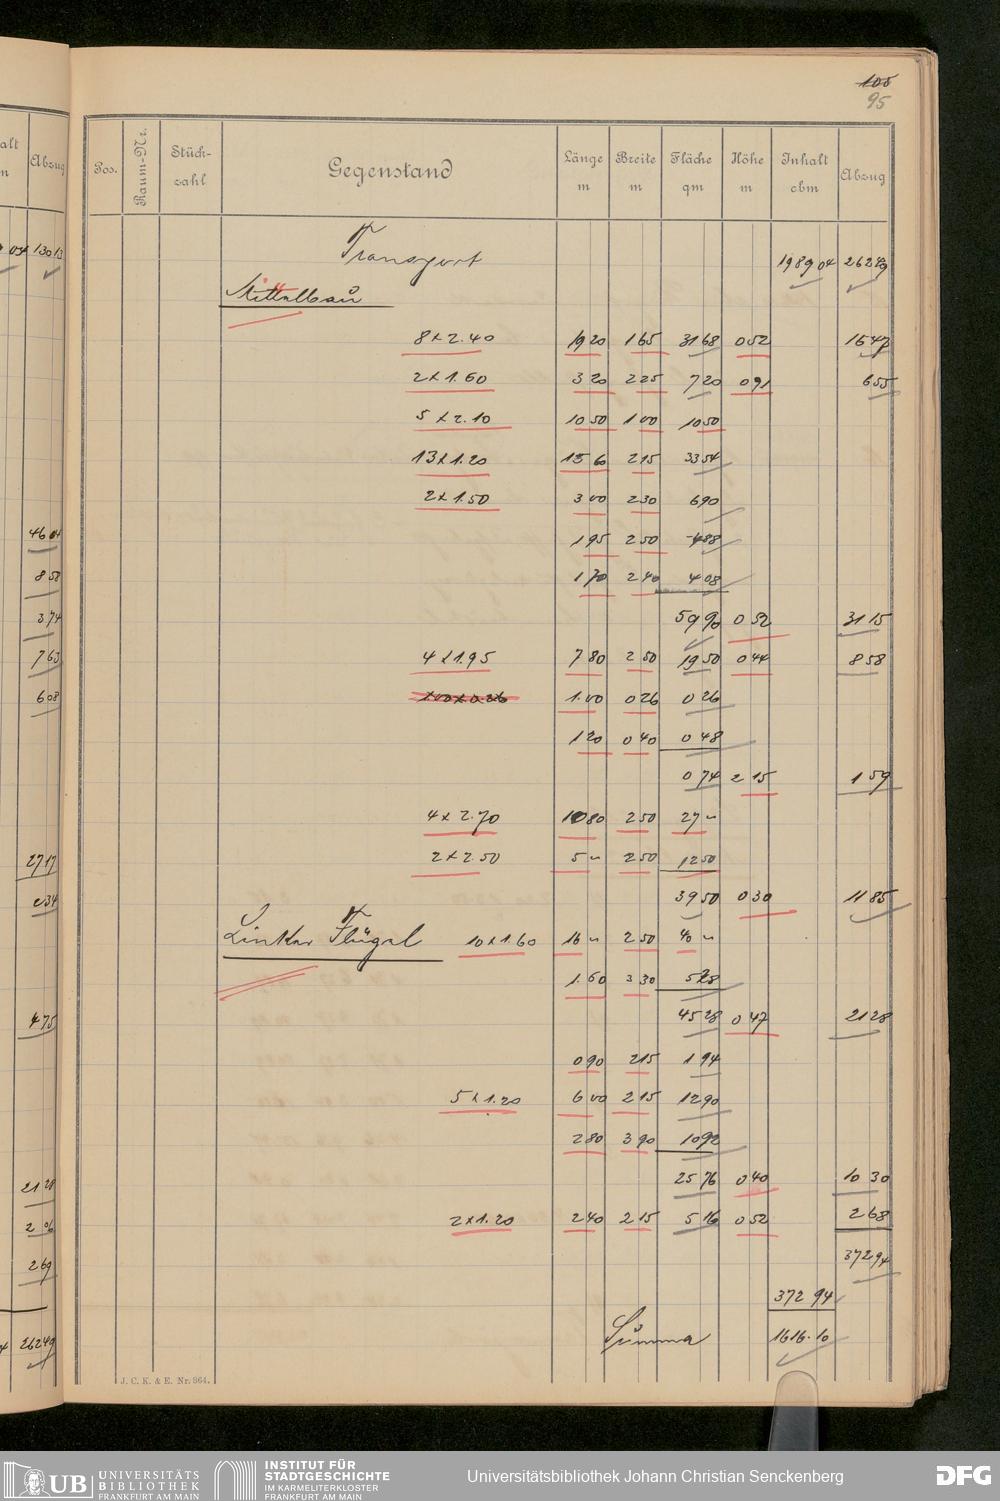 105
95
alt
Abzug
m
Pos.
Raum-Nr.
Stück-
zahl
Gegenstand
Länge
m
Breite
m
Fläche
qm
Höhe
m
Inhalt
cbm
Abzug
04 130 13
Transport 1989 04 262 49
Mittelbau
8 x 2.40 19 20 1 65 31 68 0 52 16 47
2 x 1.60 3 20 2 25 7 20 0 91 6 55
5 x 2.10 10 50 1 00 10 50
13 x 1.20 15 60 2 15 33 54
2 x 1.50 3 00 2 30 6 90
46 04
1 95 2 50 4 88
8 58
1 70 2 40 4 08
3 74
59 90 0 52 31 15
7 63
4 x 1.95 7 80 2 50 19 50 0 44 8 58
6 08
1.00 x 0.26 1.00 0 26 0 26
1 20 0 40 0 48
0 74 2 15 1 59
4 x 2.70 10 80 2 50 27 ~
27 17
2 x 2.50 5 ~ 2 50 12 50
0 34
39 50 0 30 11 85
Linker Flügel 10 x 1.60 16 ~ 2 50 40 ~
1.60 3 30 5 28
4 75
45 28 0 47 21 28
0 90 2 15 1 94
5 x 1.20 6 00 2 15 12 90
2 80 3 90 10 92
21 28
25 76 0 40 10 30
2 06
2 x 1.20 2 40 2 15 5 16 0 52 2 68
2 69
372 94
372 94
262 49
Summa 1616.10
J. C. K. & E. Nr. 864.
UB UNIVERSITÄTS
BIBLIOTHEK
FRANKFURT AM MAIN
INSTITUT FÜR
STADTGESCHICHTE
IM KARMELITERKLOSTER
FRANKFURT AM MAIN
Universitätsbibliothek Johann Christian Senckenberg
DFG